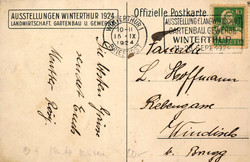 AUSSTELLUNGEN WINTERTHUR 1924
LANDWIRTSCHAFT, GARTENBAU U. GEWERBE
Offizielle Postkarte
WINTERTHUR 1
10-11
15.IX
1924
AUSSTELLUNG LANDW.
GARTENBAU U. GEWERBE
WINTERTHUR
Familie
L. Hoffmann
Rebengasse
Windisch
b. Brugg
Die besten Grüsse
sendet Euch
Mutter